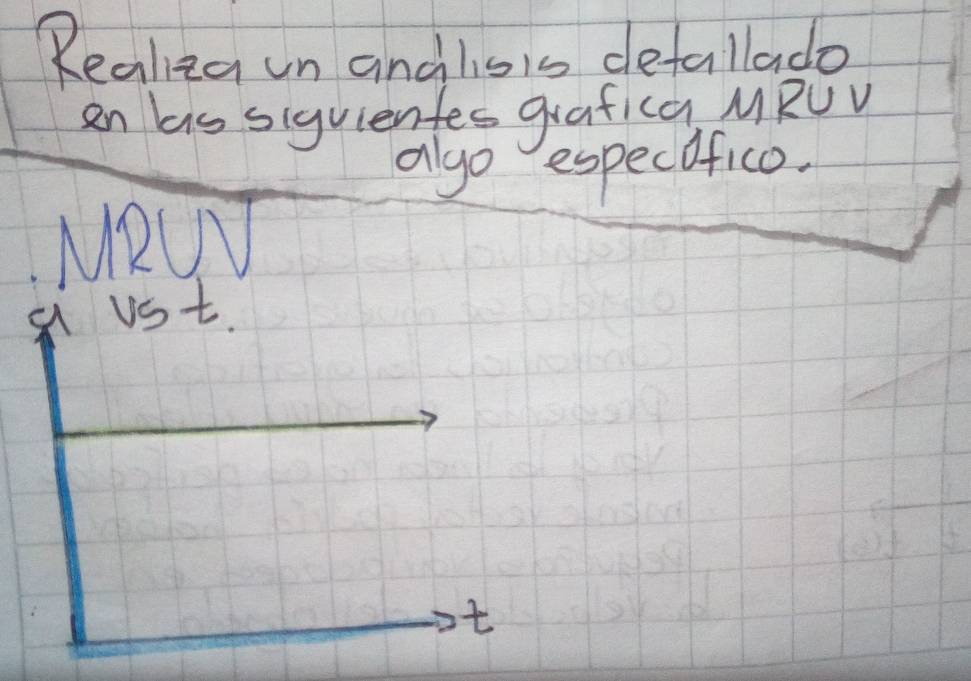 Realiza un análisis detallado
en las siguientes grafica MRUV
algo específico.
.MRUV
a vs t.
t